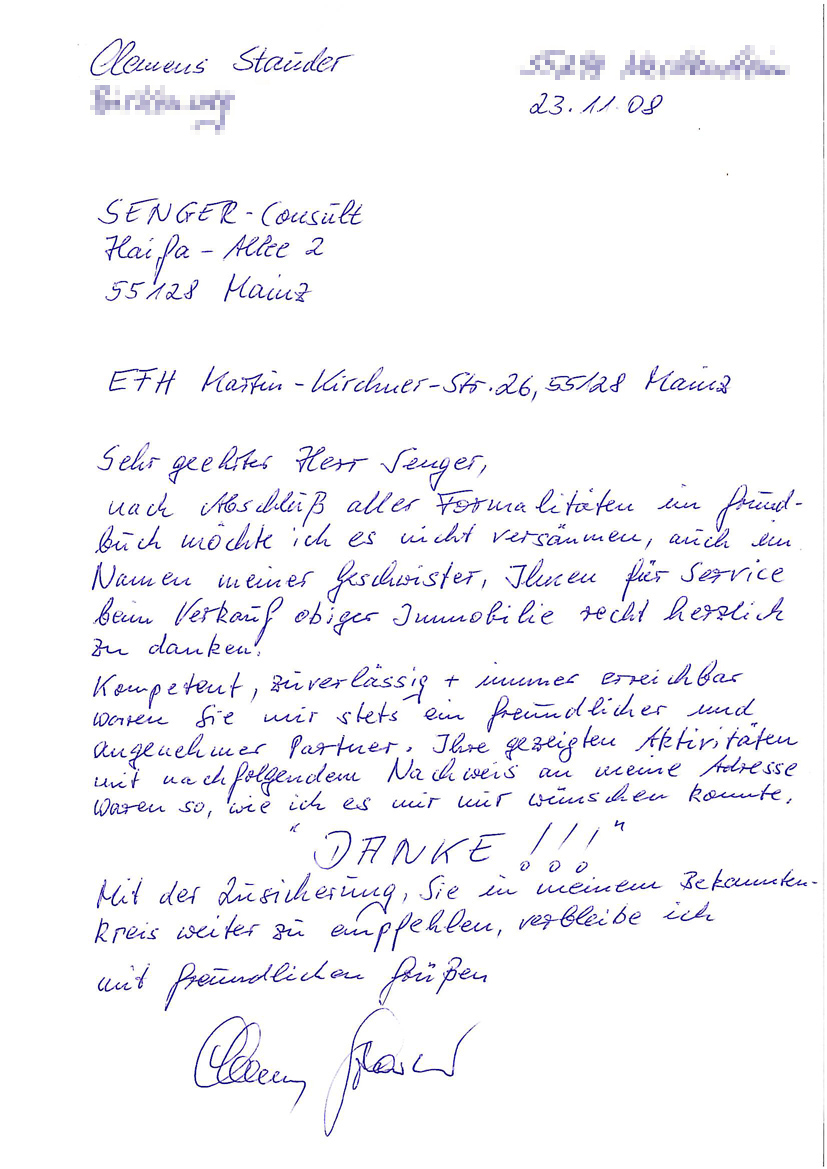 Clemens Stauder
23.11.08
SENGER-Consult
Haifa-Allee 2
55128 Mainz
EFH Martin-Kirchner-Str.26, 55128 Mainz
Sehr geehrter Herr Senger,
nach Abschluß aller Formalitäten im Grund-
buch möchte ich es nicht versäumen, auch im
Namen meiner Geschwister, Ihnen für Service
beim Verkauf obiger Immobilie recht herzlich
zu danken.
Kompetent, zuverlässig + immer erreichbar
waren Sie mir stets ein freundlicher und
angenehmer Partner. Ihre gezeigten Aktivitäten
mit nachfolgendem Nachweis an meine Adresse
waren so, wie ich es mir nur wünschen konnte.
"DANKE !!!"
Mit der Zusicherung, Sie in meinem Bekannten-
kreis weiter zu empfehlen, verbleibe ich
mit freundlichen Grüßen